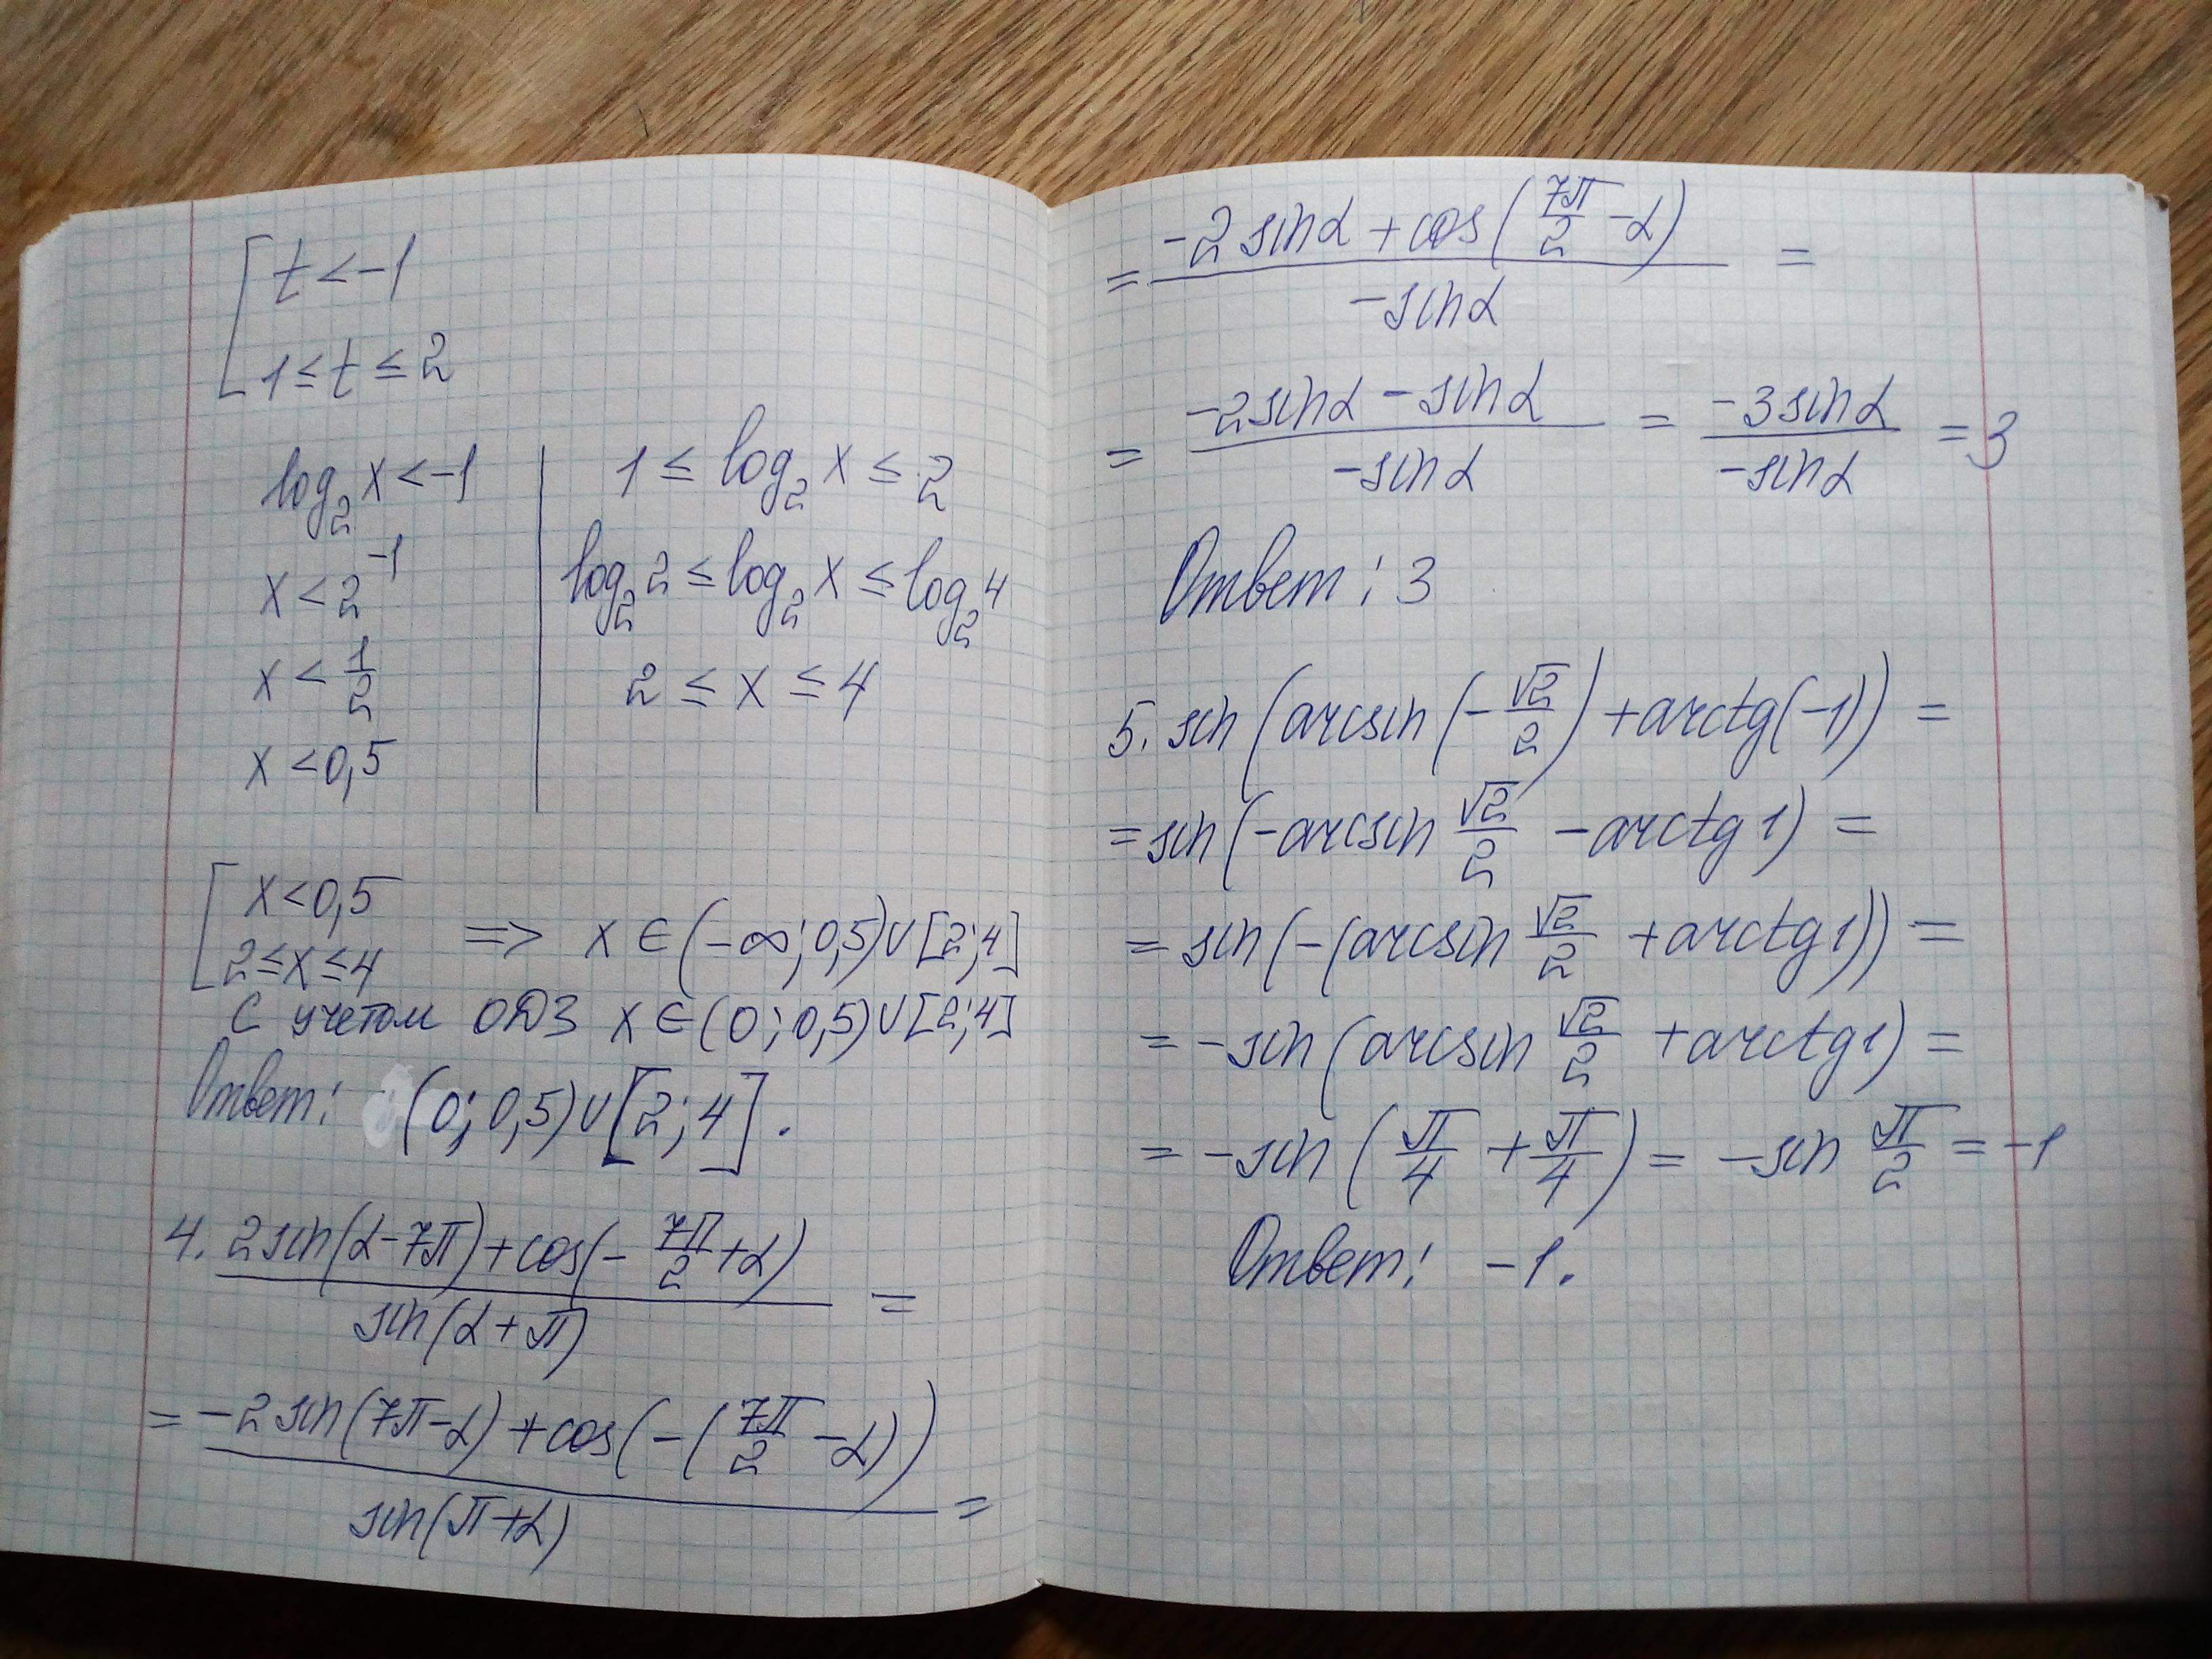 [ t < -1
1 ≤ t ≤ 2
log₂ x < -1 | 1 ≤ log₂ x ≤ 2
x < 2⁻¹ | log₂ 2 ≤ log₂ x ≤ log₂ 4
x < 1/2 | 2 ≤ x ≤ 4
x < 0,5
[ x < 0,5
2 ≤ x ≤ 4 => x ∈ (-∞; 0,5) ∪ [2; 4]
С учетом ОДЗ x ∈ (0; 0,5) ∪ [2; 4]
Ответ: (0; 0,5) ∪ [2; 4].
4. (2sin(α - 7π) + cos(-7π/2 + α)) / sin(α + π) =
= (-2sin(7π - α) + cos(-(7π/2 - α))) / sin(π + α) =
= (-2sinα + cos(7π/2 - α)) / -sinα =
= (-2sinα - sinα) / -sinα = -3sinα / -sinα = 3
Ответ: 3
5. sin(arcsin(-√2/2) + arctg(-1)) =
= sin(-arcsin √2/2 - arctg 1) =
= sin(-(arcsin √2/2 + arctg 1)) =
= -sin(arcsin √2/2 + arctg 1) =
= -sin(π/4 + π/4) = -sin π/2 = -1
Ответ: -1.